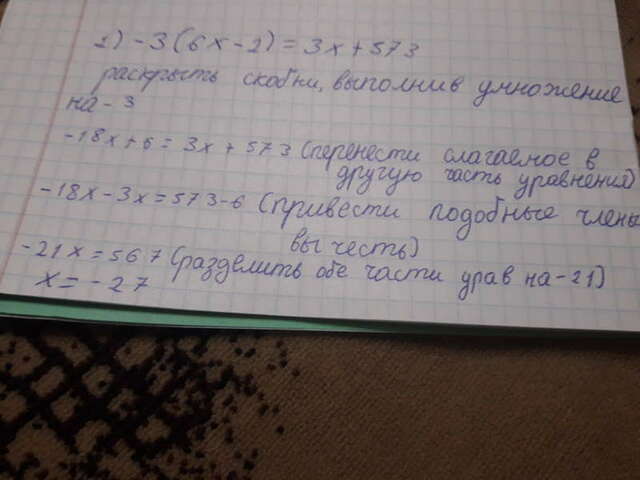 1) -3(6x-2)=3x+573
раскрыть скобки, выполнив умножение
на -3
-18x+6=3x+573 (перенести слагаемое в
другую часть уравнения)
-18x-3x=573-6 (привести подобные члены
вычесть)
-21x=567 (разделить обе части урав на -21)
x=-27